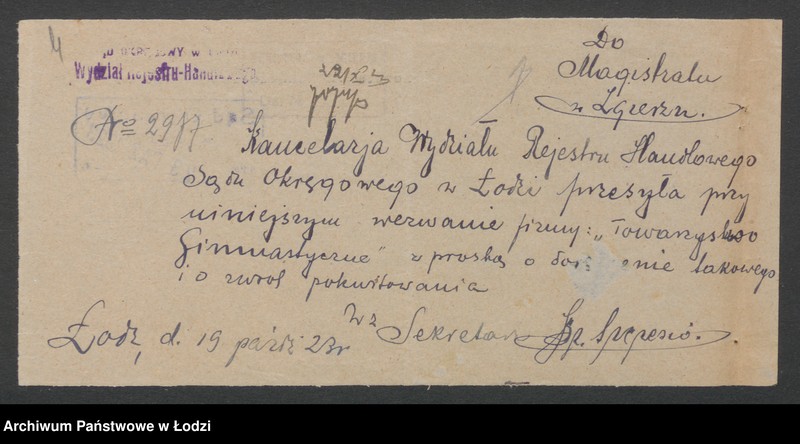 4
Wydział Rejestru-Handlowego
Do
Magistratu
w Zgierzu.
No 2917
Kancelarja Wydziału Rejestru Handlowego
Sądu Okręgowego w Łodzi przesyła przy
niniejszym wezwanie firmy: „Towarzystwo
Gimnastyczne" z prosbą o takowego
i o zwrot pokwitowania
Łodź, d. 19 paźdz 23r
Wz Sekretarz
Archiwum Państwowe w Łodzi